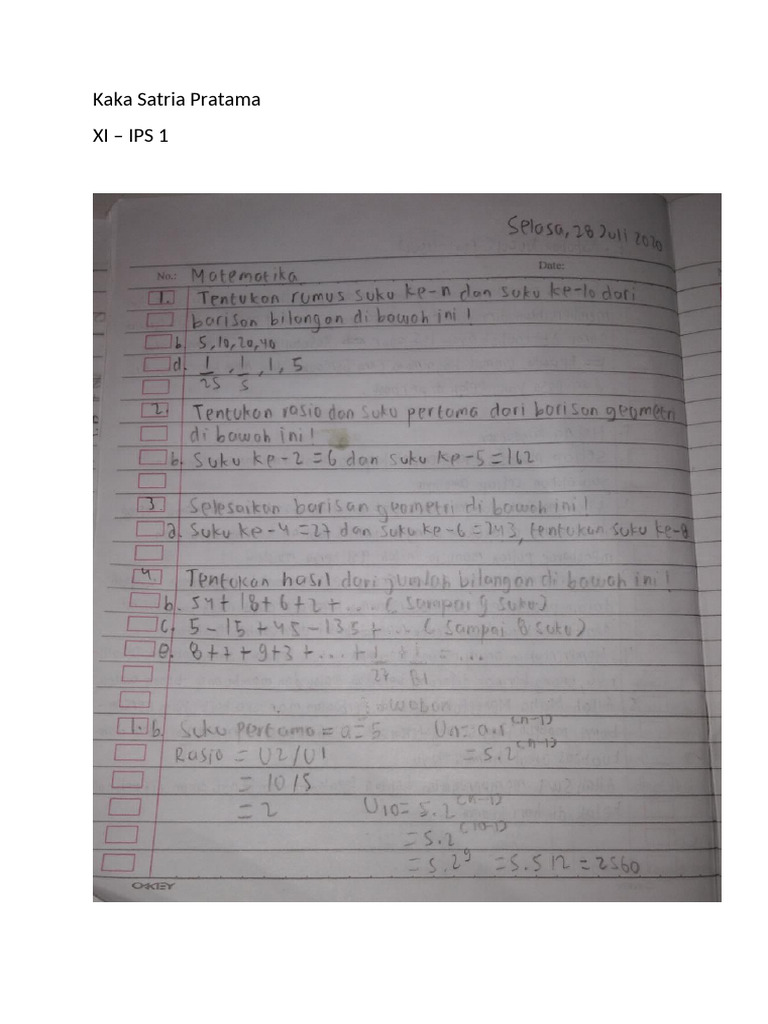 Kaka Satria Pratama
XI – IPS 1
Selasa, 28 Juli 2020
No.: Matematika Date:
1. Tentukan rumus suku ke-n dan suku ke-10 dari
barisan bilangan di bawah ini !
b. 5, 10, 20, 40
d. 1/25, 1/5, 1, 5
2. Tentukan rasio dan suku pertama dari barisan geometri
di bawah ini !
b. Suku ke-2 = 6 dan suku ke-5 = 162
3 Selesaikan barisan geometri di bawah ini !
a. Suku ke-4 = 27 dan suku ke-6 = 243, tentukan suku ke-8
4. Tentukan hasil dari jumlah bilangan di bawah ini !
b. 54 + 18 + 6 + 2 + ... ( sampai 9 suku )
c. 5 - 15 + 45 - 135 + ... ( sampai 8 suku )
e. 8++ + 9 + 3 + ... + 1/27 + 1/81 = ...
Jawaban
1. b. Suku pertama = a = 5 Un = a.r^(n-1)
Rasio = U2/U1 = 5.2^(n-1)
= 10/5
= 2 U10 = 5.2^(n-1)
= 5.2^(10-1)
= 5.2^9 = 5.512 = 2560
OAKLEY